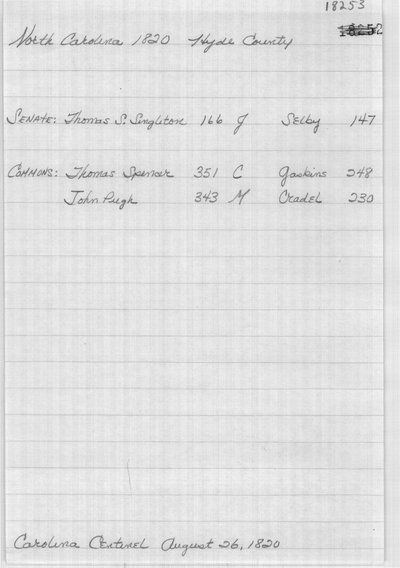 18253
18252
North Carolina 1820 Hyde County
SENATE: Thomas S. Singleton 166 J Selby 147
COMMONS: Thomas Spencer 351 C Gaskins 248
John Pugh 343 M Cradel 230
Carolina Centinel August 26, 1820